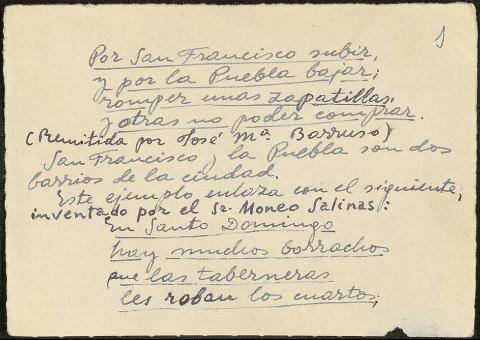 1
Por San Francisco subir,
y por la Puebla bajar;
romper unas zapatillas
y otras no poder comprar.
(Remitida por José Mª Barruso)
San Francisco y la Puebla son dos
barrios de la ciudad.
Este ejemplo enlaza con el siguiente,
inventado por el Sr. Moneo Salinas:
En Santo Domingo
hay muchos borrachos
que las taberneras
les roban los cuartos;